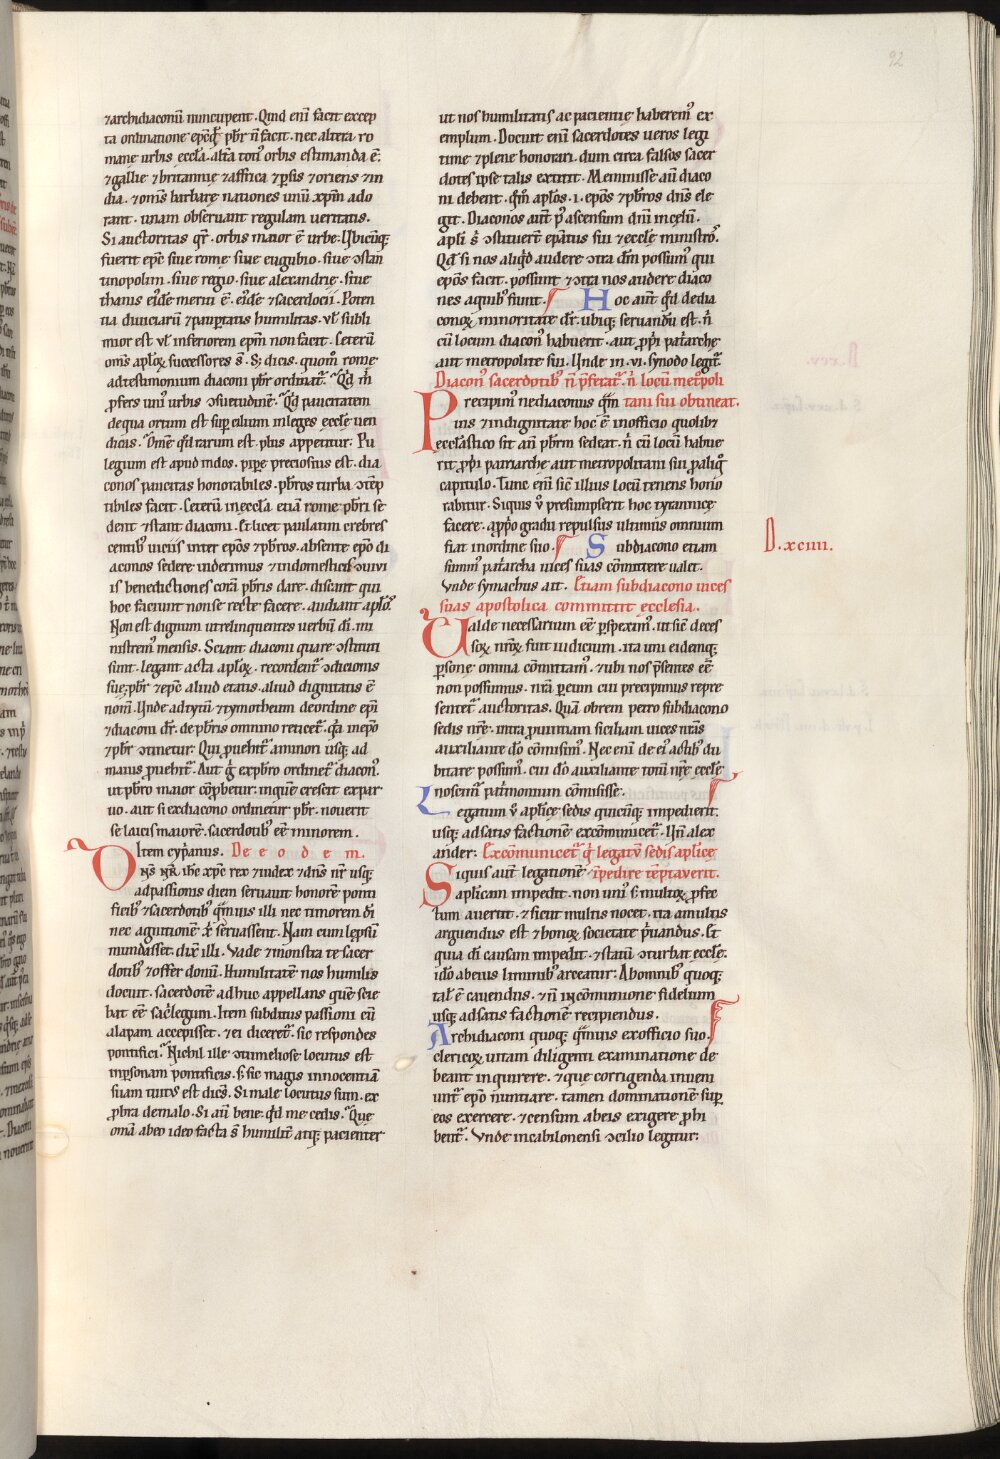 92
⁊archidiaconū nuncupent. Quid enī facit excep
ta ordinatione ep̄s qd̄ p̄br n̄ facit. nec altera ro
mane urbis eccl̄a. alt̄a toti⁹ orbis estimanda ē.
⁊ gallie ⁊ britannie ⁊ affrica ⁊ p̱sis ⁊ oriens ⁊ in
dia. ⁊ om̄s barbarę nationes unū xp̄m ado
rant. unam obseruant regulam ueritatis.
Si auctoritas qr̄. orbis maior ē urbe. Ubicūq;
fuerit ep̄c siue rome siue eugubio. siue ↄstan
tinopolim. siue regio. siue alexandrię. siue
thanis ei⁹dē meriti ē. ei⁹dē ⁊ sacerdocii. Poten
tia diuiciarū ⁊ paup̱tatis humilitas. ul̄ subli
mior est ul̄ inferiorem ep̄m non facit. Ceterū
om̄s aplo⁊ successores s̄. S; dicis. quom̊ rome
ad testimonium diaconi p̄br ordinat᷑. Qd̄ m̄
p̱fers uni⁹ urbis ↄsuetudinē. Qd̄ paucitatem
de qua ortum est sup̱cilium in leges eccl̄e uen
dicas. Om̄e qd̄ rarum est plus appetitur. Pu
legium est apud indos. pipe preciosius est. dia
conos paucitas honorabiles. p̄bros turba ↄtēp
tibiles facit. Ceterū in eccl̄a etiā rome p̄bri se
dent ⁊ stant diaconi. Et licet paulatim crebres
centib⁹ uiciis inter ep̄os ⁊ p̄bros. absente ep̄o di
aconos sedere uiderimus ⁊ in domesticis ↄuiui
is benedictiones corā p̄bris dare. discant qui
hoc faciunt non se recte facere. audiant apl̄o⁹.
Non est dignum ut relinquentes uerbū dī. mi
nistrem⁹ mensis. Sciant diaconi quare ↄstituti
sunt. legant acta aplo⁊. recordent᷑ ↄdicionis
suę. p̄br ⁊ ep̄c aliud etatis. aliud dignitatis ē
nom̄. Unde ad tytū ⁊ tymotheum de ordine ep̄i
⁊ diaconi dr̄. de p̄bris omnino reticet᷑. q̄a in ep̄o
⁊ p̄br ↄtinetur. Qui ꝓuehit᷑ a minori usq; ad
maius ꝓuehit᷑. Aut g̊ ex p̄bro ordinet᷑ diacon⁹.
ut p̄bro maior cōp̱betur. in que crescit ex par
uo. aut si ex diacono ordinetur p̄br. nouerit
se lacis maiorē. sacerdotib⁹ eē minorem.
Item cyp̄anus. De eodem.
Dn̄s nr̄ ih̄c xp̄c rex ⁊ iudex ⁊ dn̄s nr̄ usq;
ad passionis diem seruauit honorē ponti
ficib⁹ ⁊ sacerdotib⁹ q̄muis illi nec timorem dī
nec agnitionē x̄ seruassent. Nam cum lep̱sū
mundasset. dix̄ illi. Vade ⁊ monstra te sacer
doti ⁊ offer donū. Humilitatē nos humilis
docuit. sacerdotē adhuc appellans quē scie
bat eē sac̄legum. Item subditus passioni cū
alapam accepisset. ⁊ ei diceret᷑. sic respondes
pontifici. Nichil ille ↄtumeliose locutus est
in p̱sonam pontificis. s; sic magis innocentiā
suam tuitus est dic̄s. Si male locutus sum. ex
p̱bra de malo. Si aū bene. qd̄ me cedis. Que
om̄a ab eo ideo facta s̄ humilit̄ atq; pacienter
ut nos humilitatis ac pacientie haberem⁹ ex
emplum. Docuit enī sacerdotes ueros legi
time ⁊ plene honorari. dum circa falsos sacer
dotes ip̄se talis extitit. Meminisse aū diaco
ni debent. qm̄ apl̄os. i. ep̄os ⁊ p̄bros dn̄s ele
git. Diaconos aut̄ p⁹ ascensum dn̄i in celū.
apl̄i s̄ ↄstituert̄ ep̄atus sui ⁊ eccl̄e ministro⁹.
Qd̄ si nos aliqd̄ audere ↄtra dm̄ possum⁹ qui
ep̄os facit. possunt ⁊ ↄtra nos audere diaco
nes a quib⁹ fiunt. Hoc aut̄ qd̄ de dia
cono⁊ minoritate dr̄. ubiq; seruandū est. n̄
cū locum diacon⁹ habuerit. aut p̱p̱i pat̄arche
aut metropolite sui. Unde in .vi. synodo legit᷑.
Diacon⁹ sacerdotib⁹ n̄ p̄ferat᷑. n̄ locū met̊poli
tani sui obtineat.
Precipim⁹ ne diaconus q̄m
uis ⁊ in dignitate hoc ē in officio quolib⁊
eccl̄astico sit an̄ p̄brm sedeat. n̄ cū locū habue
rit p̱p̱i patriarche aut metropolitani sui ꝓ aliq̊
capitulo. Tunc enī sic̄ illius locū tenens hono
rabitur. Siquis u̇ presumpserit hoc tyrannicę
facere. a p̱p̱o gradu repulsus ultimus omnium
fiat in ordine suo. Subdiacono etiam
summ⁹ pat̄archa uices suas cōmittere ualet.
D. xciiii.
Vnde symachus ait. Etiam subdiacono uices
suas apostolica committit ecclesia.
Valde necessarium eē p̱speximus. ut sic̄ deces
so⁊ nr̄o⁊ fuit iudicium. ita uni eidemq;
p̱sone omnia cōmittam⁹. ⁊ ubi nos p̄sentes eē
non possumus. nr̄a p̱ eum cui precipimus repre
sentet᷑ auctoritas. Quā obrem petro subdiacono
sedis nr̄e. intra ꝓuintiam siciliam uices nr̄as
auxiliante dō cōmisim⁹. Nec enī de ei⁹ actib⁹ du
bitare possum⁹. cui dō auxiliante totū nr̄e eccl̄e
noscim⁹ patrimonium cōmisisse.
Legatum u̇ aplice sedis quicūq; impedierit.
usq; ad satisfactionē excōmunicet᷑. Un̄ alex
ander. Excōmunicet᷑ q̇ legatū sedis aplice
īpedire tēptauerit.
Siquis aut̄ legationē
aplicam impedit. non uni⁹ s; multo⁊ ꝓfec
tum auertit. ⁊ sicut multis nocet. ita a multis
arguendus est ⁊ bono⁊ societate p̄uandus. Et
quia dī causam impedit. ⁊ statū ↄturbat eccl̄e.
idō ab ei⁹ liminib⁹ arceatur. Ab omnib⁹ quoq;
tal̄ ē cauendus. ⁊ n̄ in cōmunione fidelium
usq; ad satisfactionē recipiendus.
Archidiaconi quoq; q̄muis ex officio suo
clerico⁊ uitam diligenti examinatione de
beant inquirere. ⁊ que corrigenda inueni
unt᷑ ep̄o nuntiare. tamen dominationē sup̱
eos exercere. ⁊ censum ab eis exigere ꝓhi
bent᷑. Vnde in cabilonensi ↄcilio legitur.